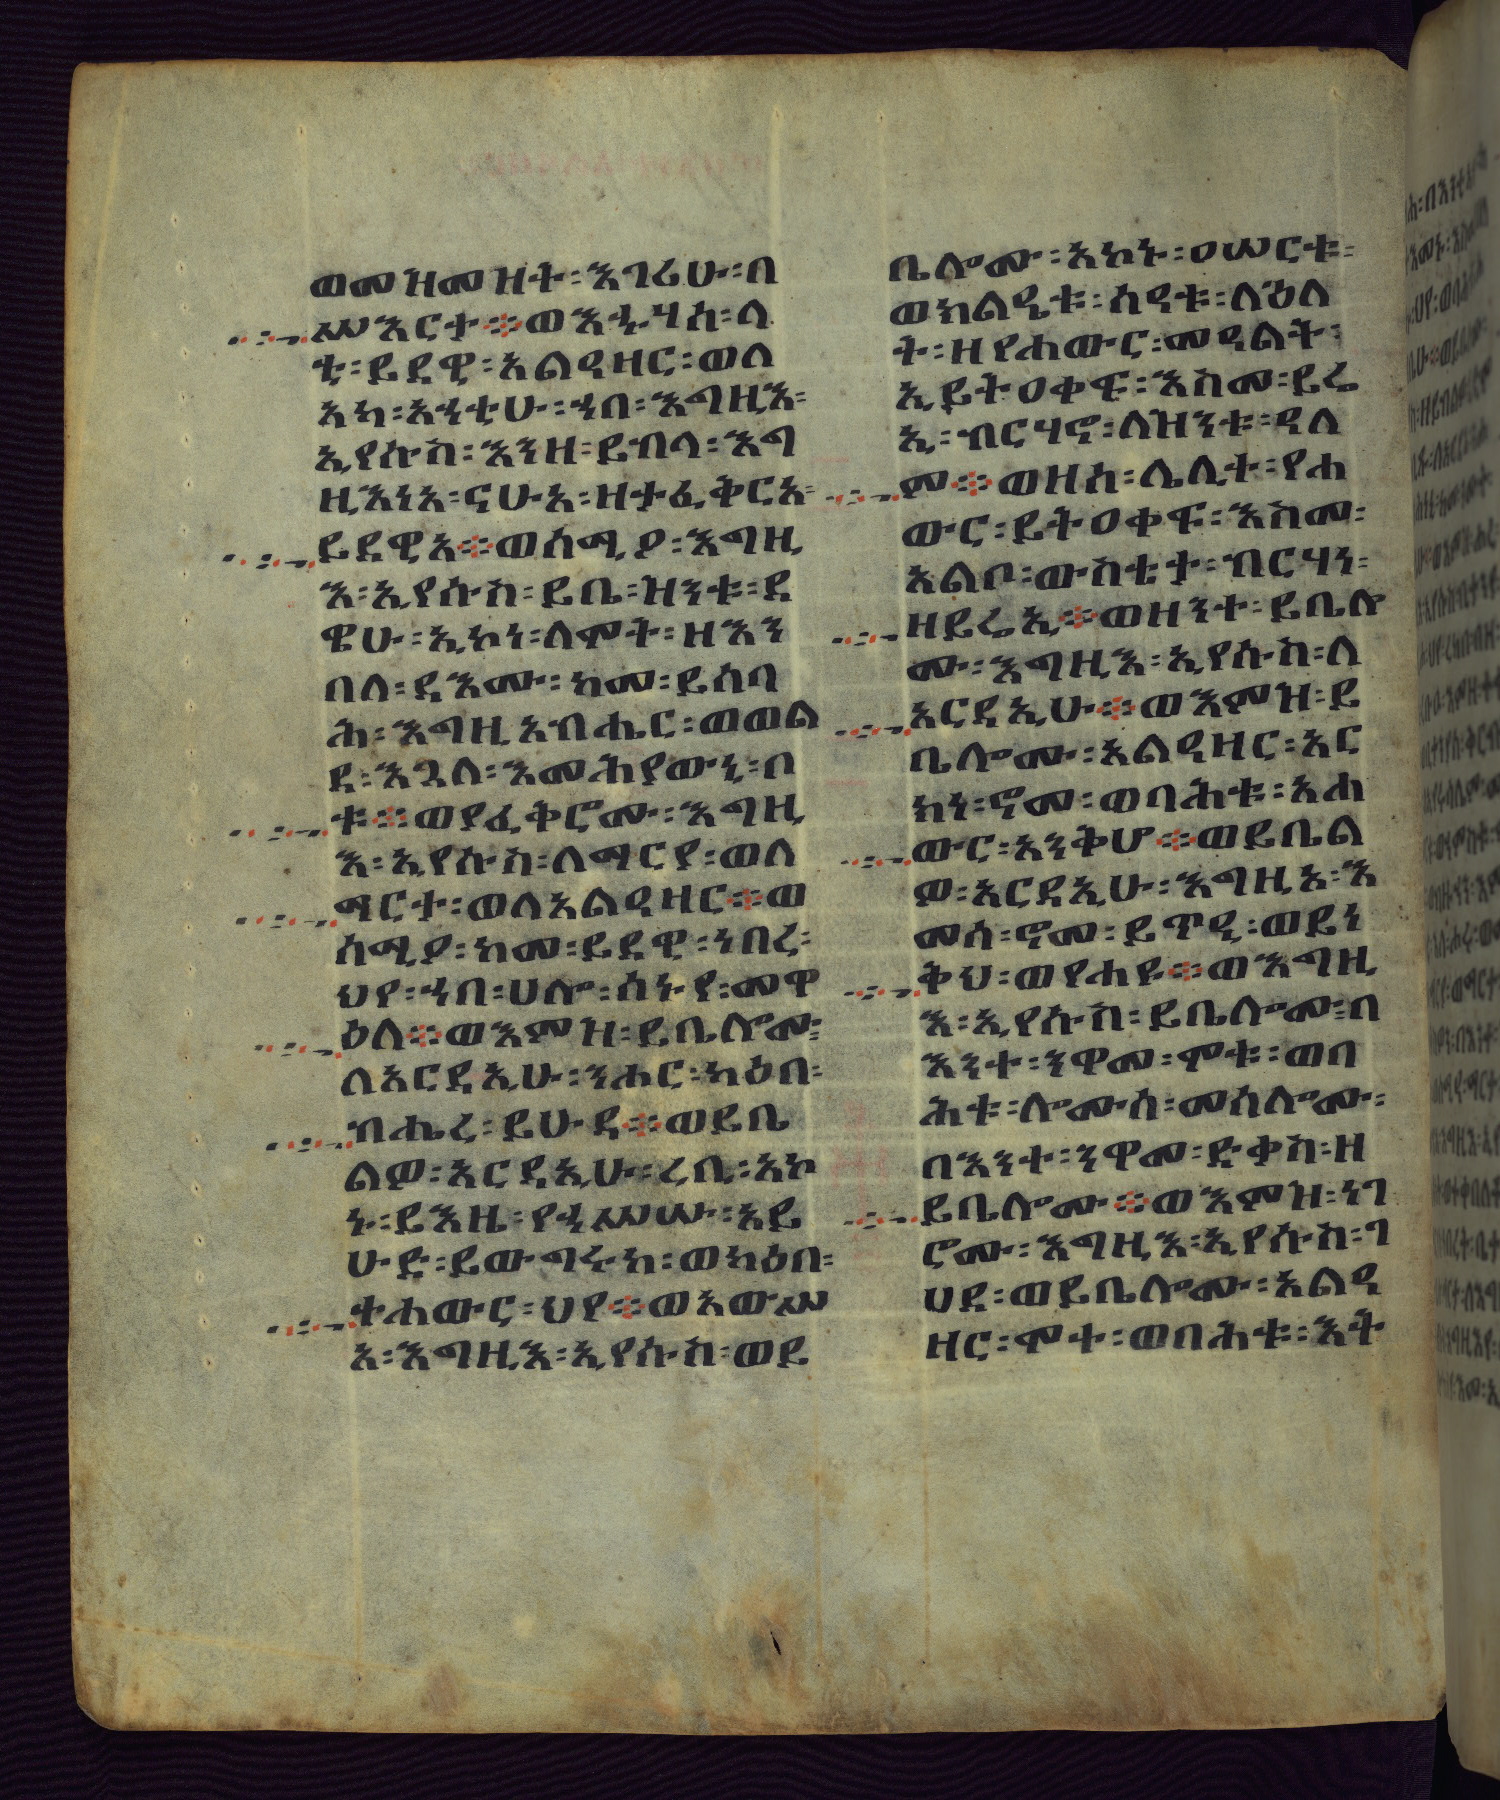 ወመዝመዝት፡እገሪሁ፡በ
ሥእርታ፨ወእኁሃስ፡ላ
ቲ፡ይደዊ፡አልዓዛር፡ወለ
አካ፡አኃቲሁ፡ኀበ፡እግዚእ፡
ኢየሱስ፡እንዘ፡ይብላ፡እግ
ዚእነአ፡ናሁአ፡ዘታፈቅርአ፡
ይደዊአ፨ወሰሚዖ፡እግዚ
እ፡ኢየሱስ፡ይቤ፡ዝንቱ፡ደ
ዌሁ፡ኢኮነ፡ለሞት፡ዘእን
በለ፡ዳእሙ፡ከመ፡ይሰባ
ሕ፡እግዚአብሔር፡ወወል
ደ፡እጓለ፡እመሕያውኒ፡በ
ቱ፨ወያፈቅሮሙ፡እግዚ
እ፡ኢየሱስ፡ለማርያ፡ወለ
ማርታ፡ወለአልዓዛር፨ወ
ሰሚዖ፡ከመ፡ይደዊ፡ነበረ፡
ህየ፡ኀበ፡ሀሎ፡ሰኑየ፡መዋ
ዕለ፨ወእምዝ፡ይቤሎሙ፡
ለአርዳኢሁ፡ንሑር፡ካዕበ፡
ብሔረ፡ይሁዳ፨ወይቤ
ልዎ፡አርዳኢሁ፡ረቢ፡አኮ
ኑ፡ይእዜ፡የኃሥሡ፡አይ
ሁድ፡ይውግሩከ፡ወካዕበ፡
ተሐውር፡ህየ፨ወአውሥ
አ፡እግዚእ፡ኢየሱስ፡ወይ
ቤሎሙ፡አኮኑ፡ዐሠርቱ፡
ወክልዔቱ፡ሰዓቱ፡ለዕለ
ት፡ዘየሐውር፡መዓልት፡
ኢይትዐቀፍ፡እስመ፡ይሬ
ኢ፡ብርሃኖ፡ለዝንቱ፡ዓለ
ም፨ወዘሰ፡ሌሊተ፡የሐ
ውር፡ይትዐቀፍ፡እስመ፡
አልቦ፡ውስቴታ፡ብርሃነ፡
ዘይሬኢ፨ወዘንተ፡ይቤሎ
ሙ፡እግዚእ፡ኢየሱስ፡ለ
አርዳኢሁ፨ወእምዝ፡ይ
ቤሎሙ፡አልዓዛር፡አር
ክነ፡ኖመ፡ወባሕቱ፡አሐ
ውር፡አንቅሆ፨ወይቤል
ዎ፡አርዳኢሁ፡እግዚአ፡እ
መሰ፡ኖመ፡ይጥዒ፡ወይነ
ቅህ፡ወየሐዩ፨ወእግዚ
እ፡ኢየሱስ፡ይቤሎሙ፡በ
እንተ፡ንዋመ፡ሞቱ፡ወባ
ሕቱ፡ሎሙሰ፡መስሎሙ፡
በእንተ፡ንዋመ፡ድቃስ፡ዘ
ይቤሎሙ፨ወእምዝ፡ነገ
ሮሙ፡እግዚእ፡ኢየሱስ፡ገ
ሀደ፡ወይቤሎሙ፡አልዓ
ዛር፡ሞተ፡ወባሕቱ፡እት